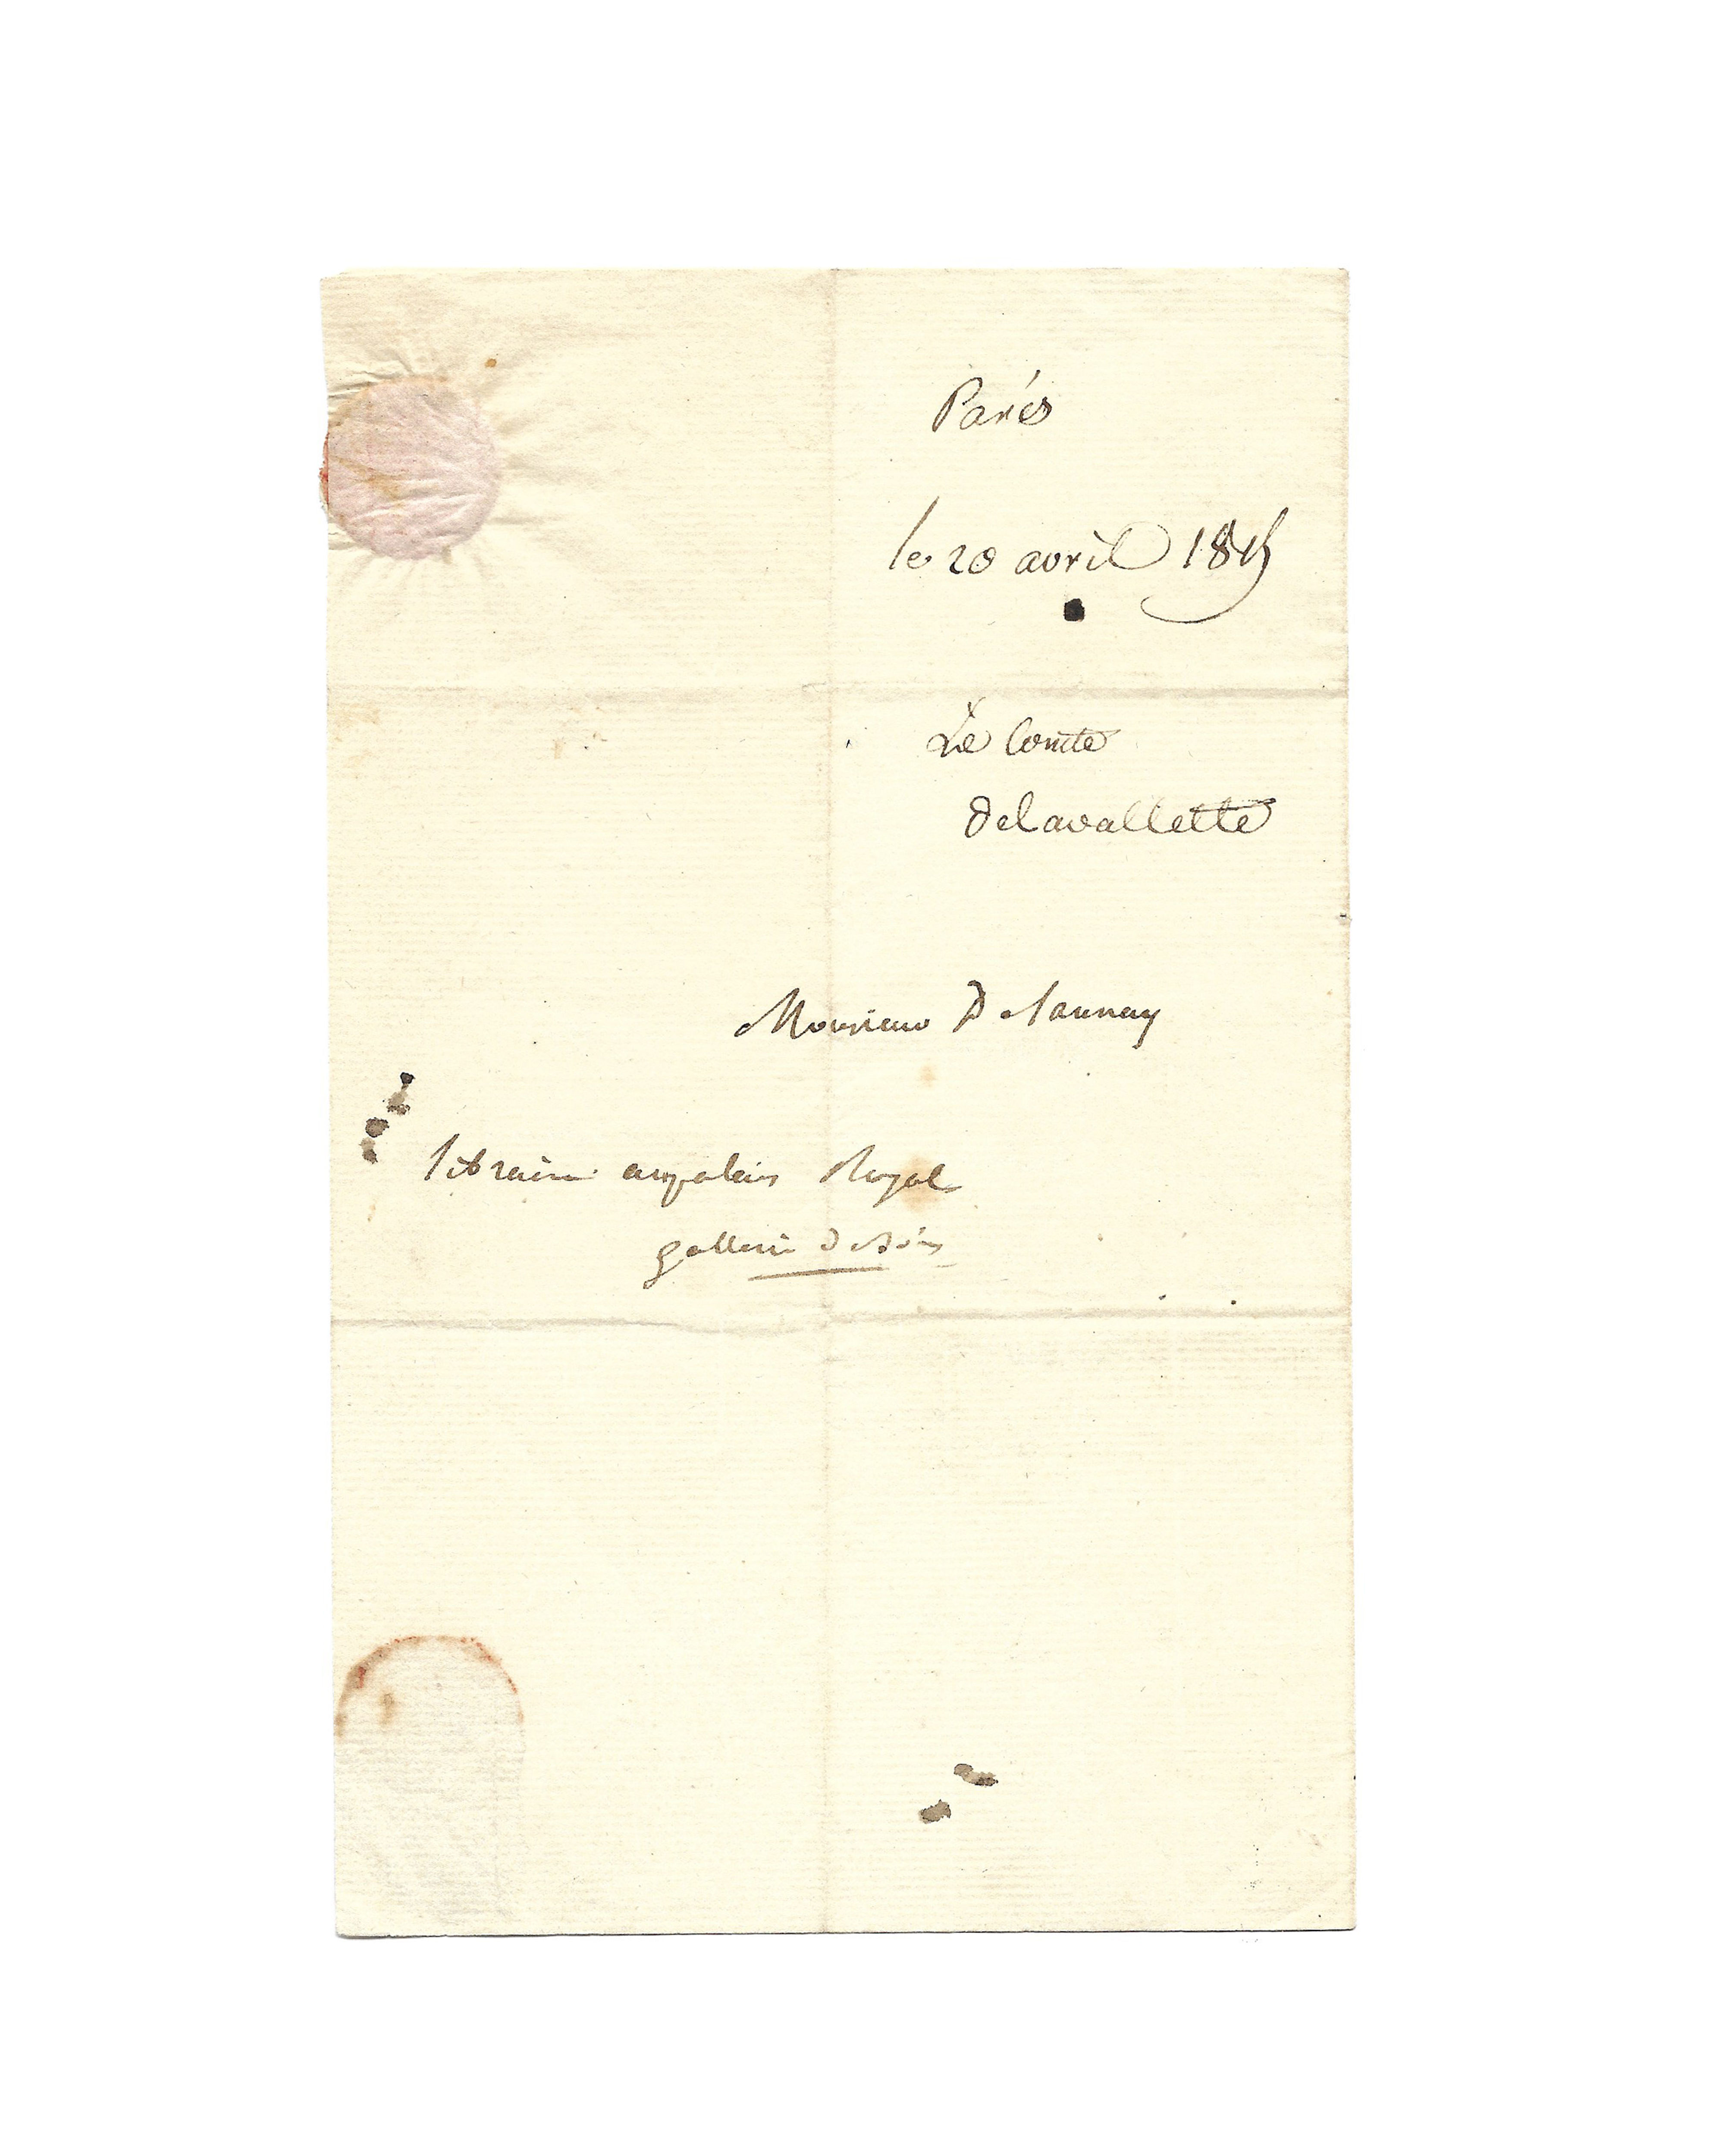 Paris
le 20 avril 1815
Le Comte
Delavallette
Monsieur Delaunay
libraire au palais Royal
gallerie de bois